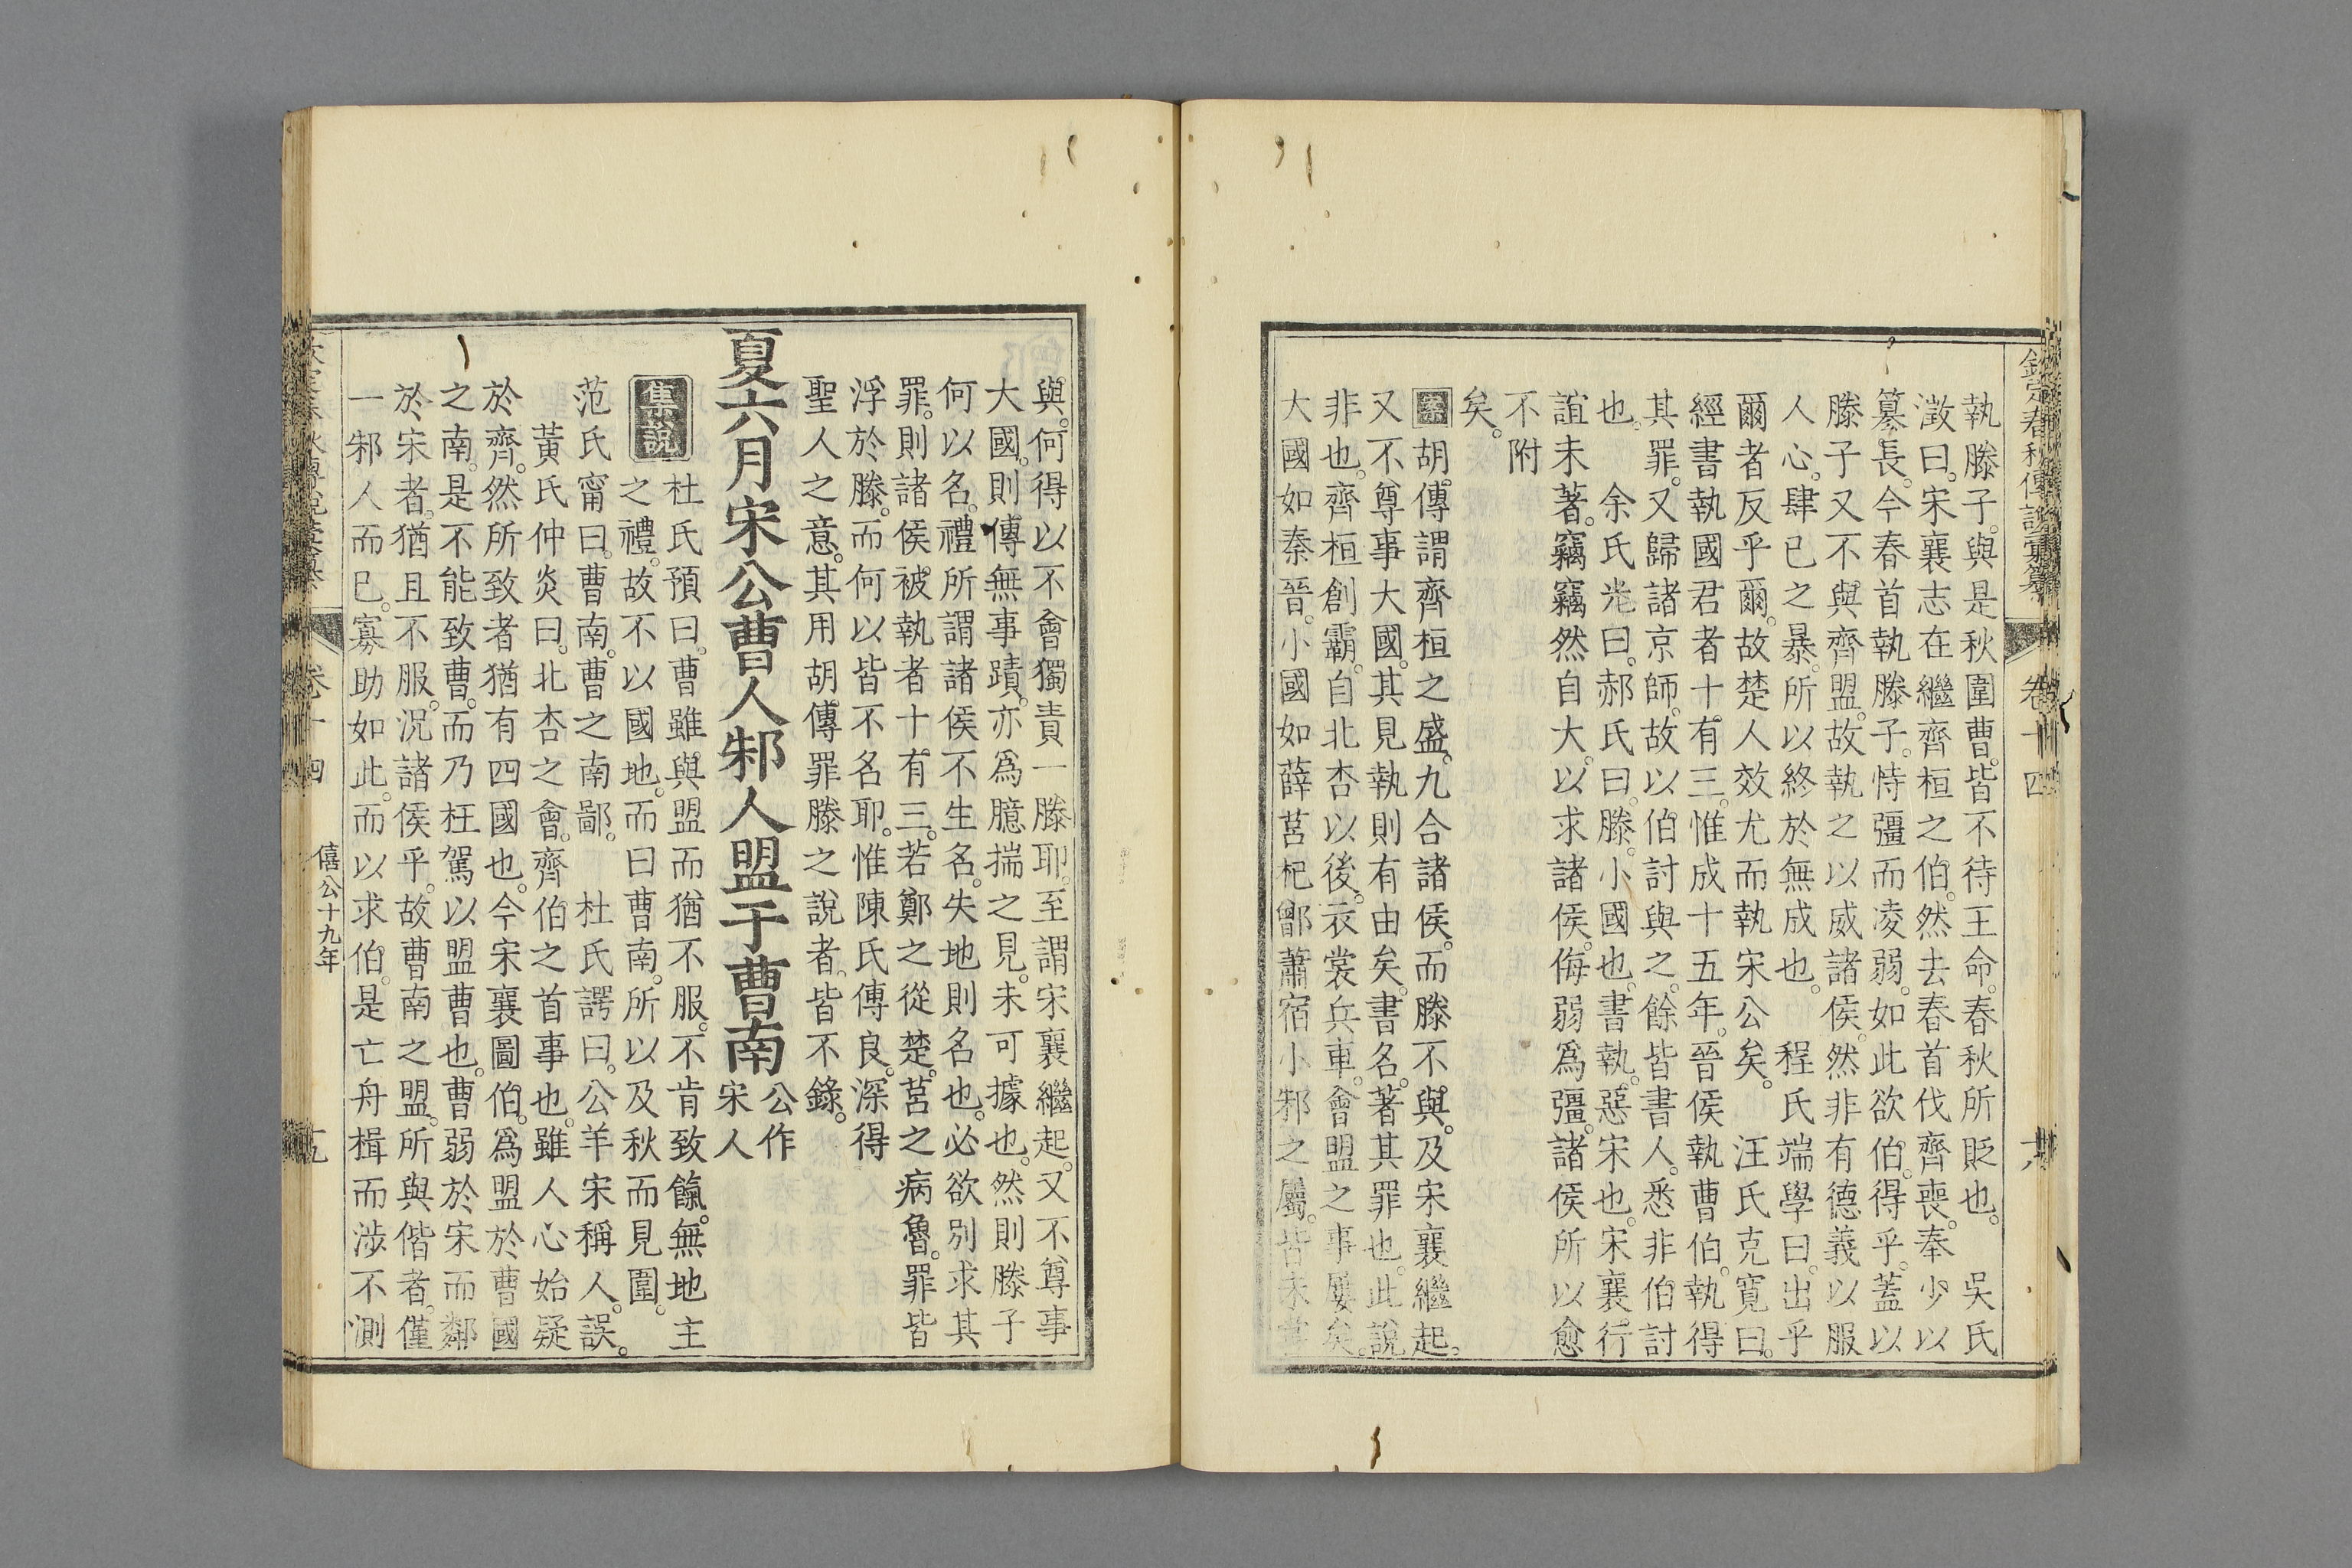 欽定春秋傳說彙纂 卷十四
執滕子。與是秋圍曹。皆不待王命。春秋所貶也。 吳氏
澂曰。宋襄志在繼齊桓之伯。然去春首伐齊喪。奉少以
簒長。今春首執滕子。恃彊而凌弱。如此欲伯。得乎。蓋以
滕子又不與齊盟。故執之以威諸侯。然非有德義以服
人心。肆已之暴。所以終於無成也。 程氏端學曰。出乎
爾者反乎爾。故楚人效尤而執宋公矣。 汪氏克寬曰。
經書執國君者十有三。惟成十五年。晉侯執曹伯。執得
其罪。又歸諸京師。故以伯討與之。餘皆書人。悉非伯討
也。 余氏光曰。郝氏曰。滕。小國也。書執。惡宋也。宋襄。行
誼未著。竊竊然自大。以求諸侯。侮弱爲彊。諸侯所以愈
不附
矣。
案 胡傳謂齊桓之盛。九合諸侯。而滕不與。及宋襄繼起。
又不尊事大國。其見執則有由矣。書名。著其罪也。此說
非也。齊桓創霸。自北杏以後。衣裳兵車。會盟之事屢矣。
大國如秦晉。小國如薛莒杞鄫蕭宿小邾之屬。皆未嘗
與。何得以不會獨責一滕耶。至謂宋襄繼起。又不尊事
大國。則傳無事蹟。亦爲臆揣之見。未可據也。然則滕子
何以名。禮所謂諸侯不生名。失地則名也。必欲別求其
罪。則諸侯被執者十有三。若鄭之從楚。莒之病魯。罪皆
浮於滕。而何以皆不名耶。惟陳氏傳良。深得
聖人之意。其用胡傳罪滕之說者。皆不錄。
夏六月宋公曹人邾人盟于曹南 公作宋人
集說 杜氏預曰。曹雖與盟而猶不服。不肯致餼。無地主
之禮。故不以國地。而曰曹南。所以及秋而見圍。
范氏甯曰。曹南。曹之南鄙。 杜氏諤曰。公羊宋稱人。誤。
黃氏仲炎曰。北杏之會。齊伯之首事也。雖人心始疑
於齊。然所致者猶有四國也。今宋襄圖伯。爲盟於曹國
之南。是不能致曹。而乃枉駕以盟曹也。曹弱於宋而鄰
於宋者。猶且不服。況諸侯乎。故曹南之盟。所與偕者。僅
一邾人而已。寡助如此。而以求伯。是亡舟楫而涉不測
卷十四 僖公十九年